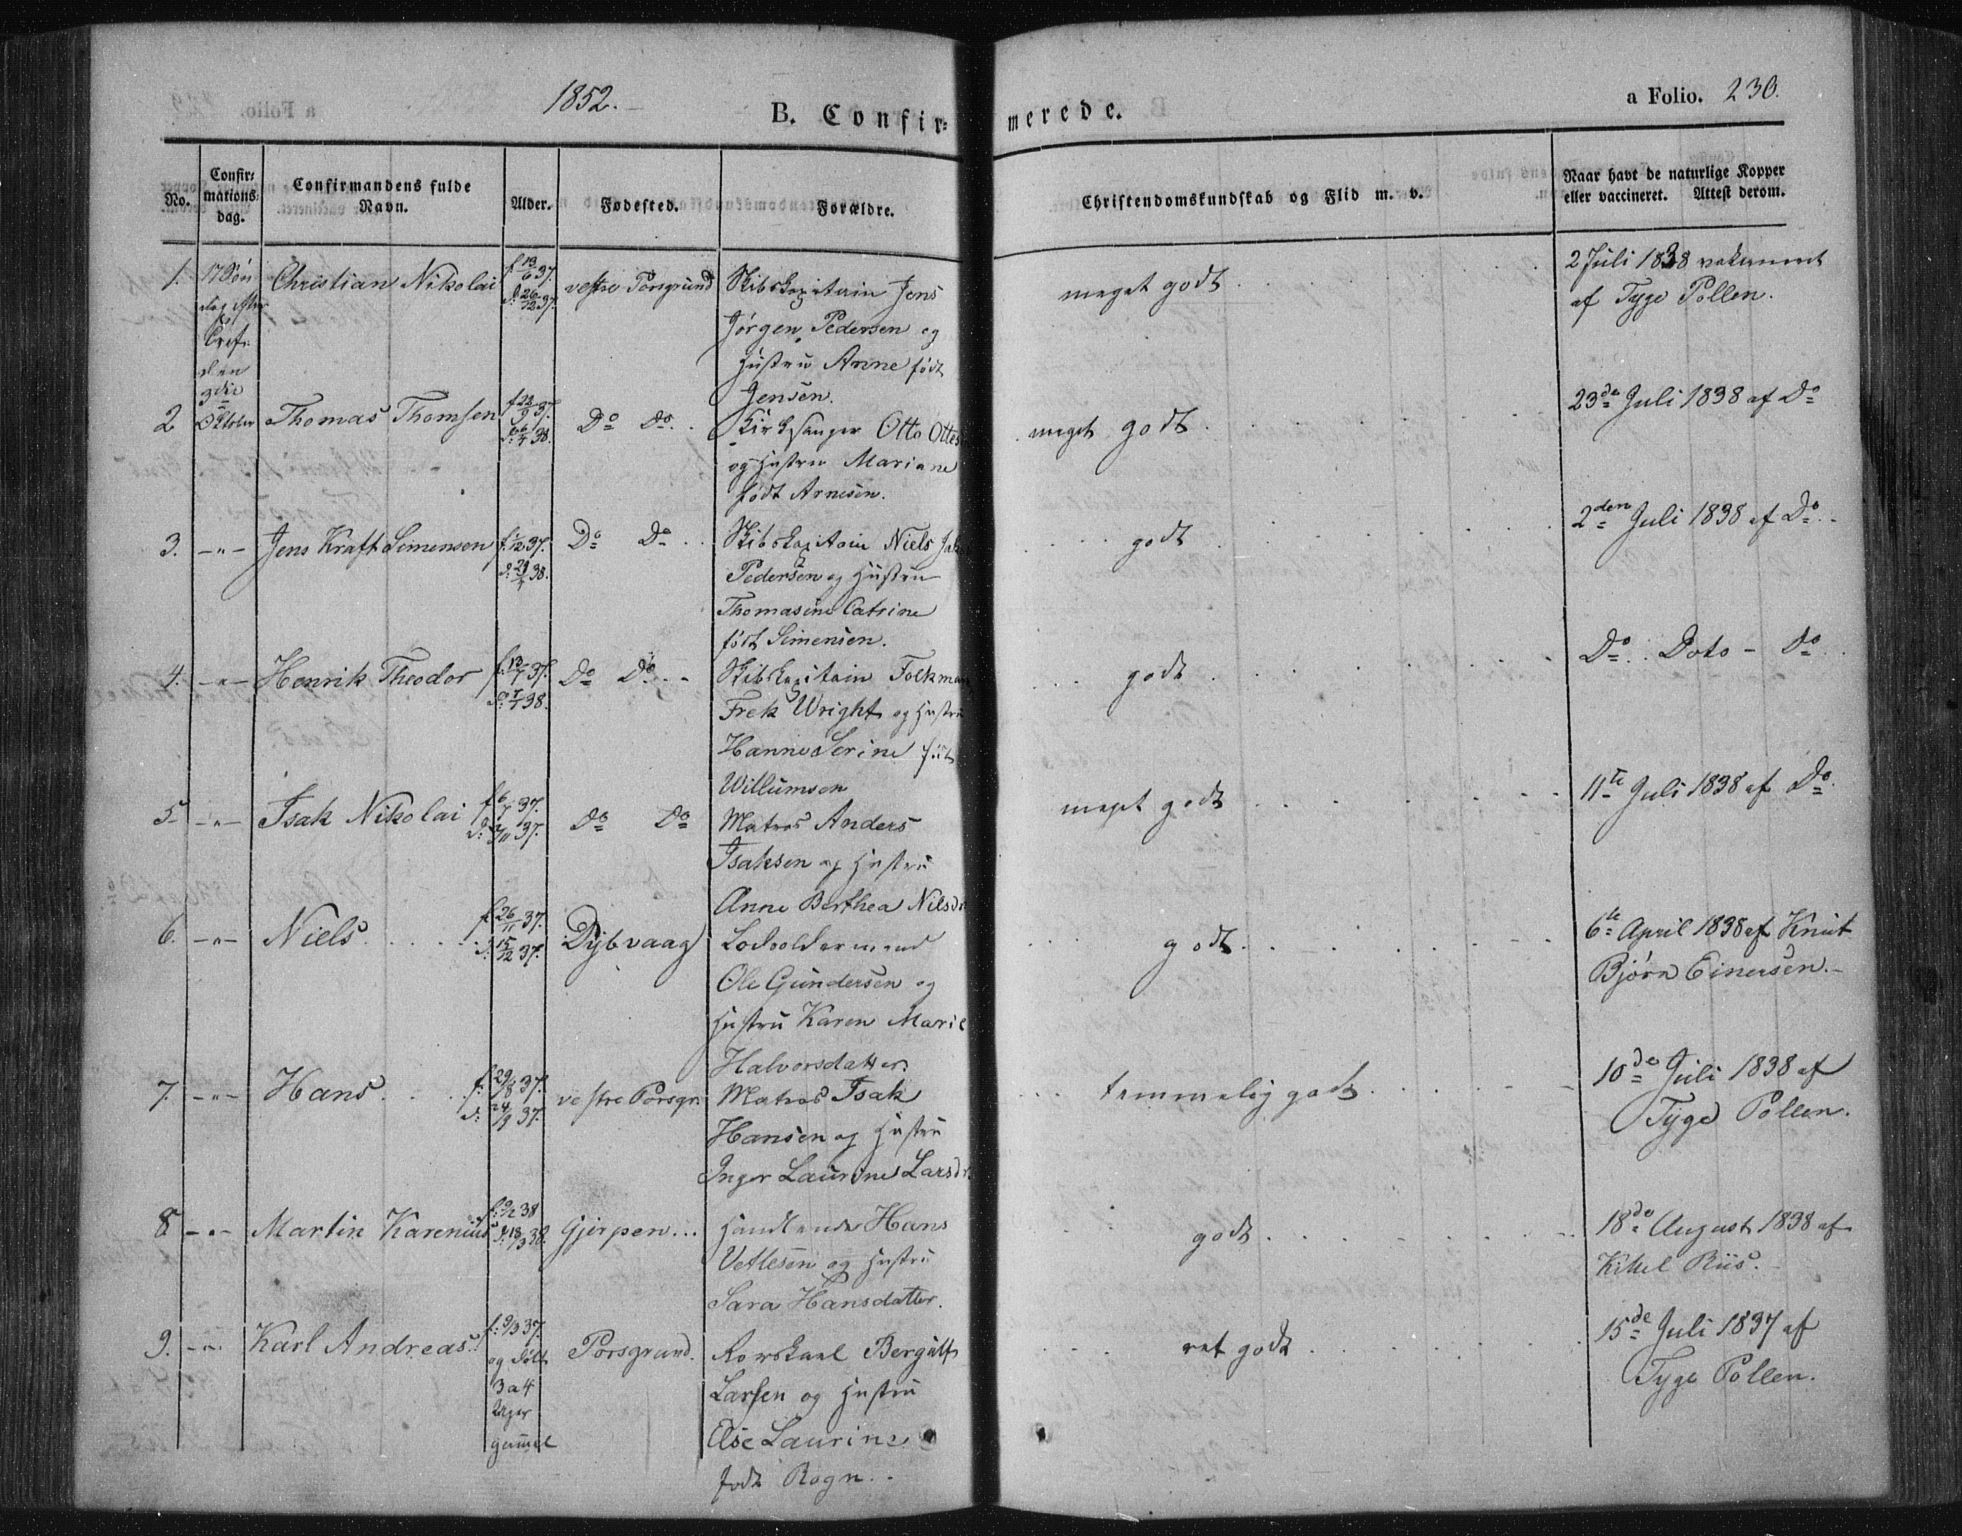 1852.
B. Confir-
merede.
a Folio. 230.
No.
Confir-
mations-
dag.
Confirmandens fulde
Navn.
Alder.
Fødested.
Forældre.
Christendomskundskab og Flid m. v.
Naar havt de naturlige Kopper
eller vaccineret. Attest derom.
1. 17 Søn Christian Nikolai f 13/6 37. vestre Porsgrund Skibskapitain Jens meget godt 2 Juli 1838 vakcineret
dag efter d. 26/12 37. Jørgen Pedersen og af Tyge Pollen.
Tref. Hustru Anne født
den Jensen.
3die
2 Oktober Thomas Thomsen Do Do Kirkesanger Otto Ottes meget godt 23de Juli 1838 af Do
og Hustru Mariane
født Arnesen.
3. -„- Jens Kraft Simensen Do Do Skibskapitain Niels godt 2den Juli 1838 af Do
Pedersen og Hustru
Thomasine Catrine
født Simensen.
4. -„- Henrik Theodor f. 13/7 37. Do Do Skibskapitain Folkman godt Do Doto Do
Frek Wright og Hustru
Hanne Serine født
Willumsen
5. -„- Isak Nikolai f. 6/7 37. Do Do Matros Anders meget godt 11te Juli 1838 af Do
Isaksen og Hustru
Anne Berthea Nilsdr
6. -„- Niels. f. 26/11 37. Dybvaag Lodsoldermand godt 6te April 1838 af Knut
d. 15/12 37. Ole Gundersen og Bjørn Einersen.
Hustru Karen Marie
Halvorsdatter.
7. -„- Hans f. 29/8 37. vestre Porsgr. Matros Isak temmelig godt 10de Juli 1838 af
d. 24/9 37. Hansen og Hustru Tyge Pollen.
Inger Laurine Larsdr.
8. -„- Martin Karenius Gjerpen Handlende Hans godt 18de August 1838 af
d. 18/3 38. Vetlesen og Hustru Kittel Riis.
Sara Hansdatter.
9. -„- Karl Andreas. f. 9/3 37. Porsgrund. Rorskarl Bergulf ret godt 15de Juli 1837 af
og døbt Larsen og Hustru Tyge Pollen.
3 a 4
Uger Else Laurine
gammel født Rogn.